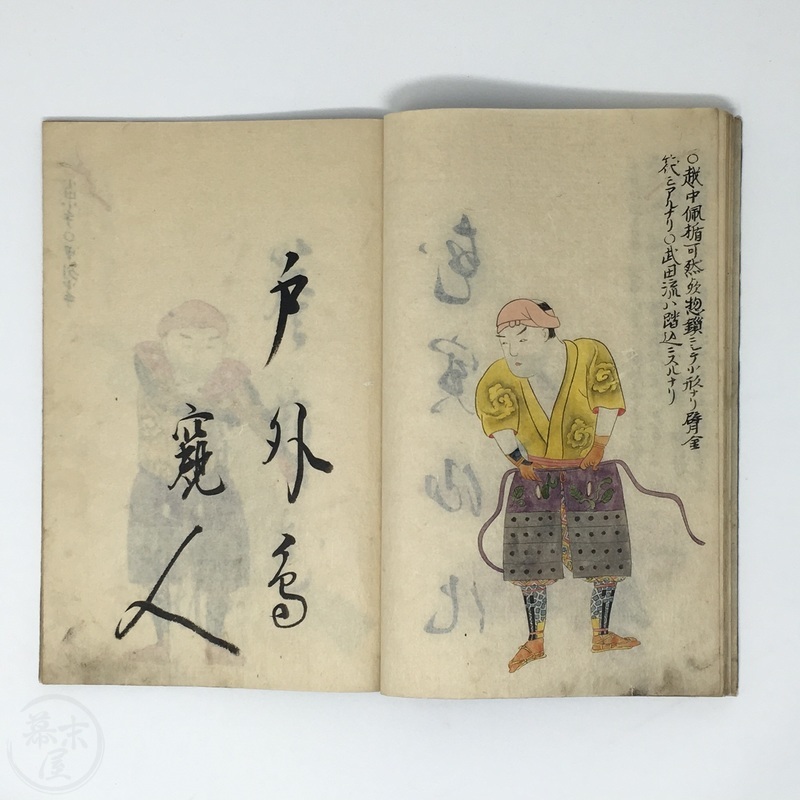 〇越中佩楯可然歟惣鎖ニシテ小形ナリ臂金
ニアルナリ〇武田流ハ踏込ニスルナリ
戸外鳥
窺人
幕末屋